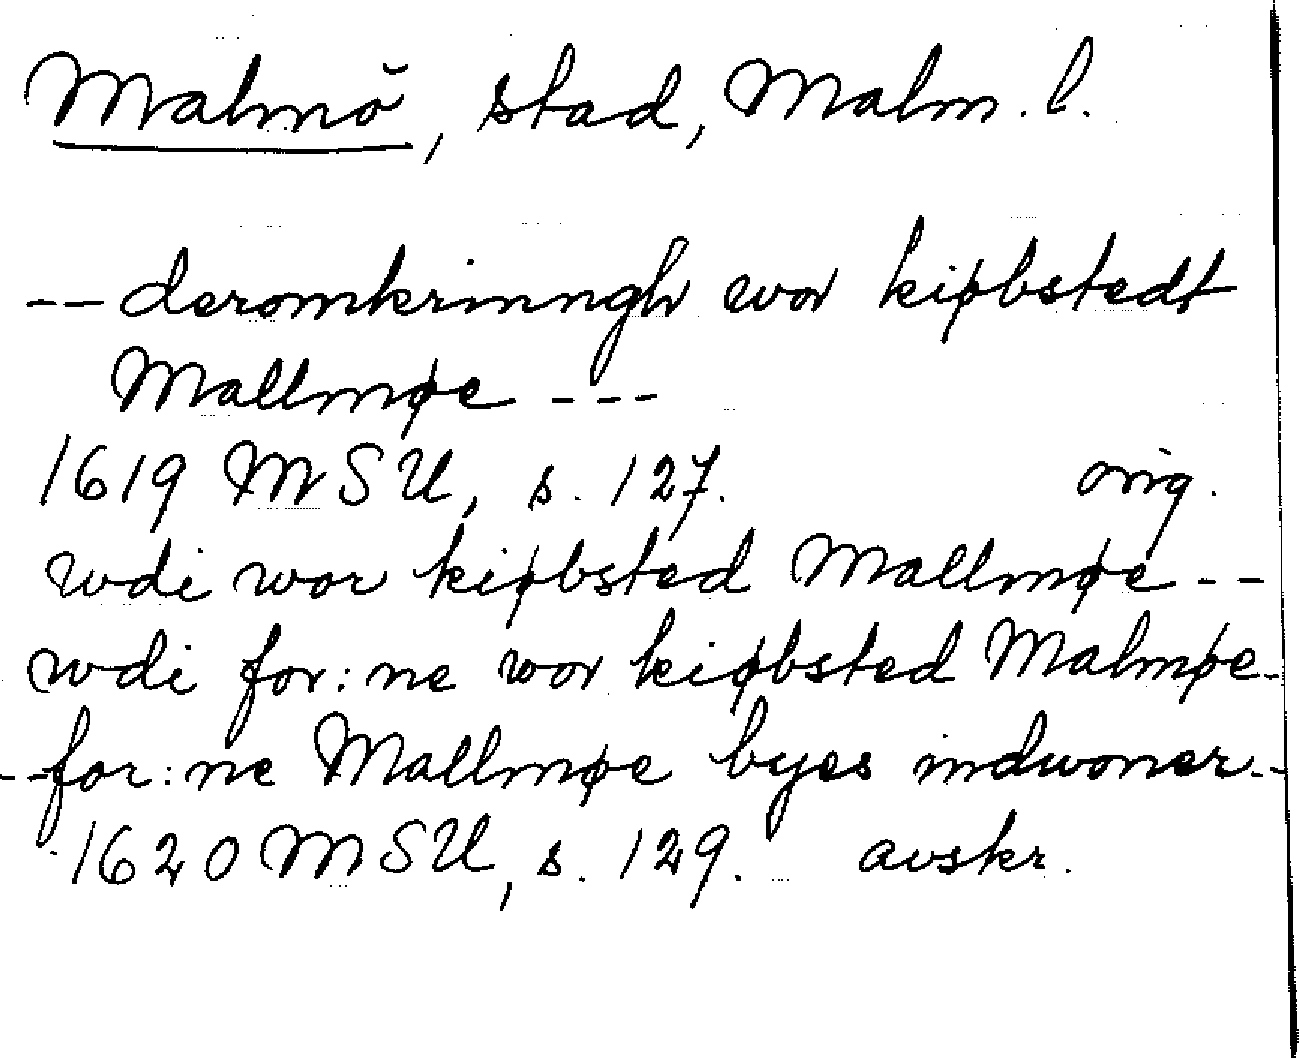 Malmö, stad, Malm. l.
-- deromkrinngh wor kiøbstedt
Mallmøe ---
1619 MSU, s. 127. orig.
wdi wor kiøbsted Mallmøe --
wdi for:ne wor kiøbsted Malmøe -
-- for:ne Mallmøe byes indwoner --
1620 MSU, s. 129. avskr.